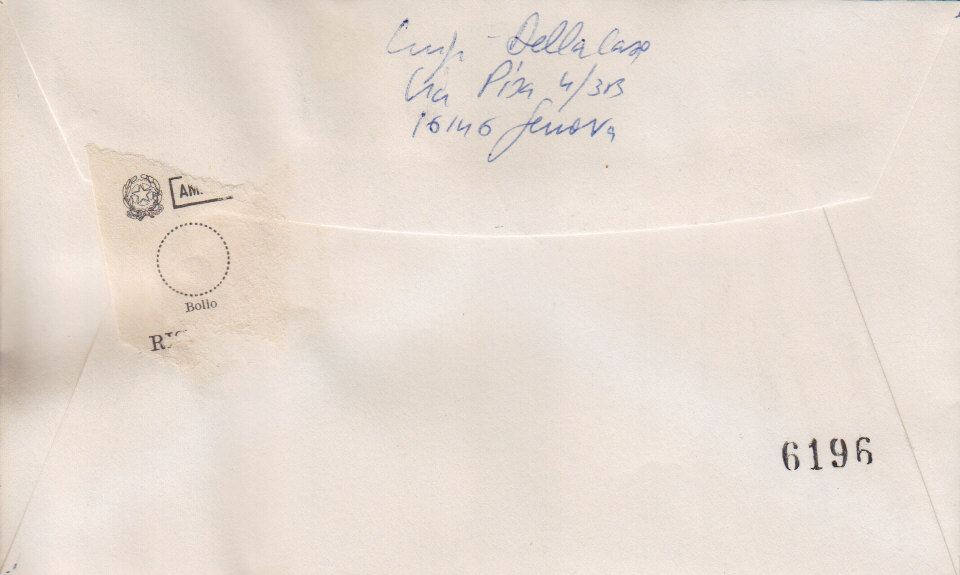 Luigi - Della Casa
Via Pisa 4/3B
16146 Genova
AM.
Bollo
RI
6196